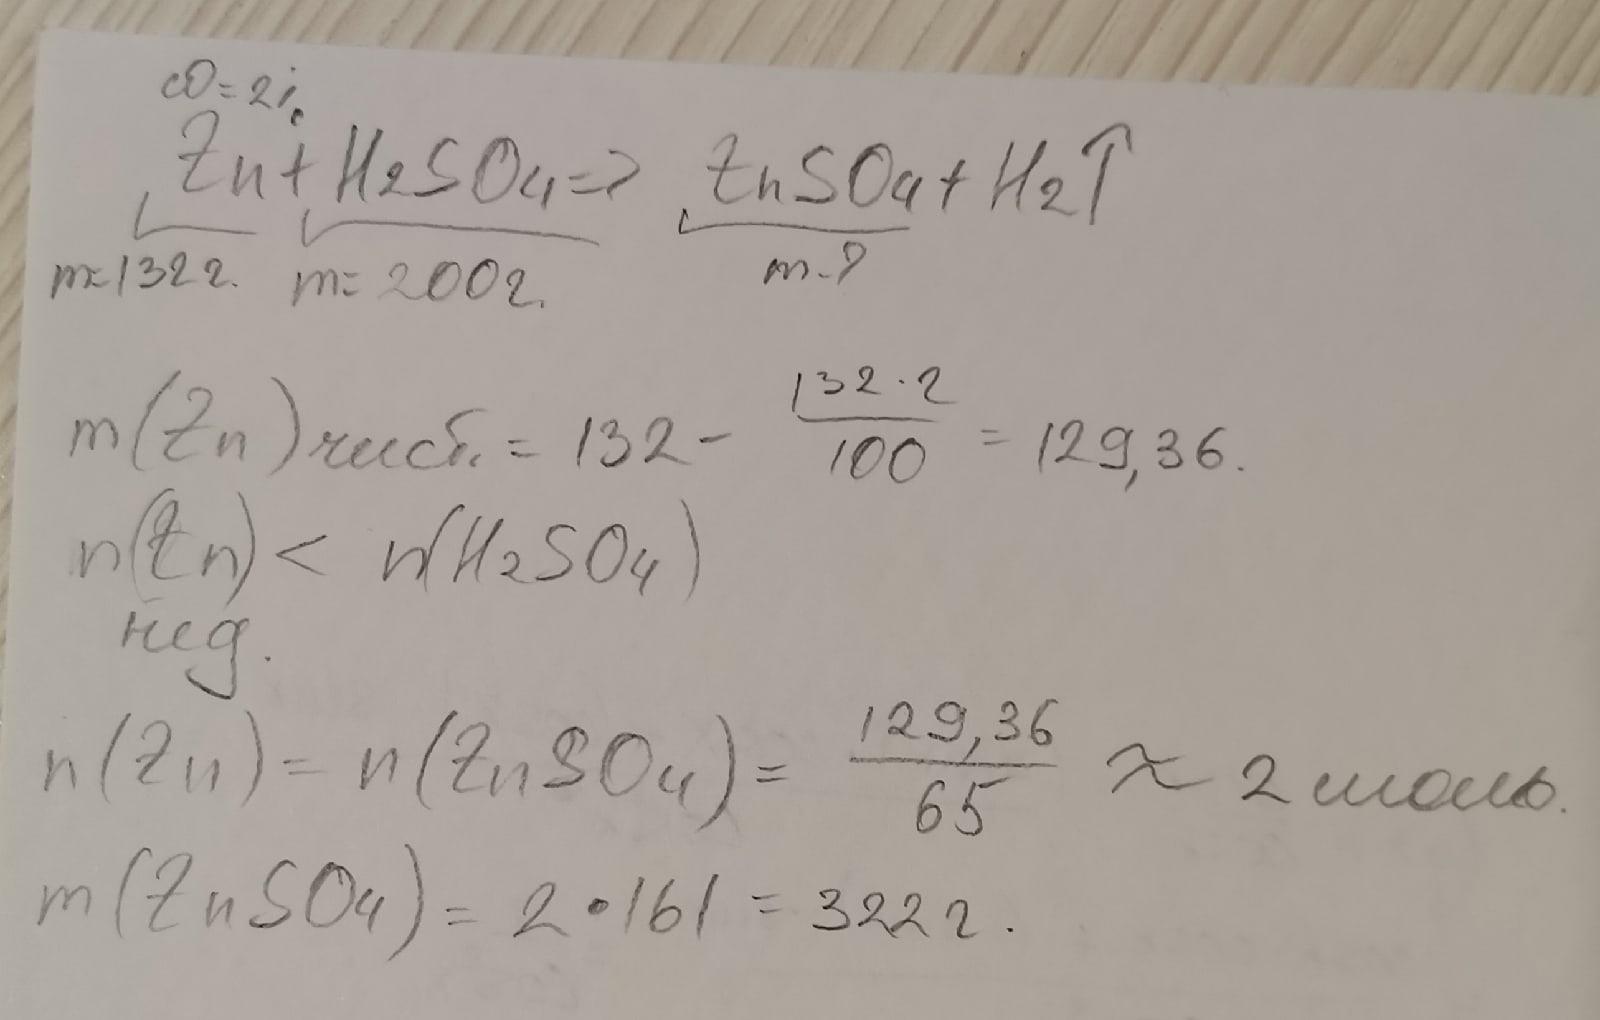 ω=2%
Zn+H2SO4=>ZnSO4+H2↑
m=132г. m=200г. m-?
m(Zn)чист.=132-132·2/100=129,36.
n(Zn)<n(H2SO4)
нед.
n(Zn)=n(ZnSO4)=129,36/65≈2моль.
m(ZnSO4)=2•161=322г.